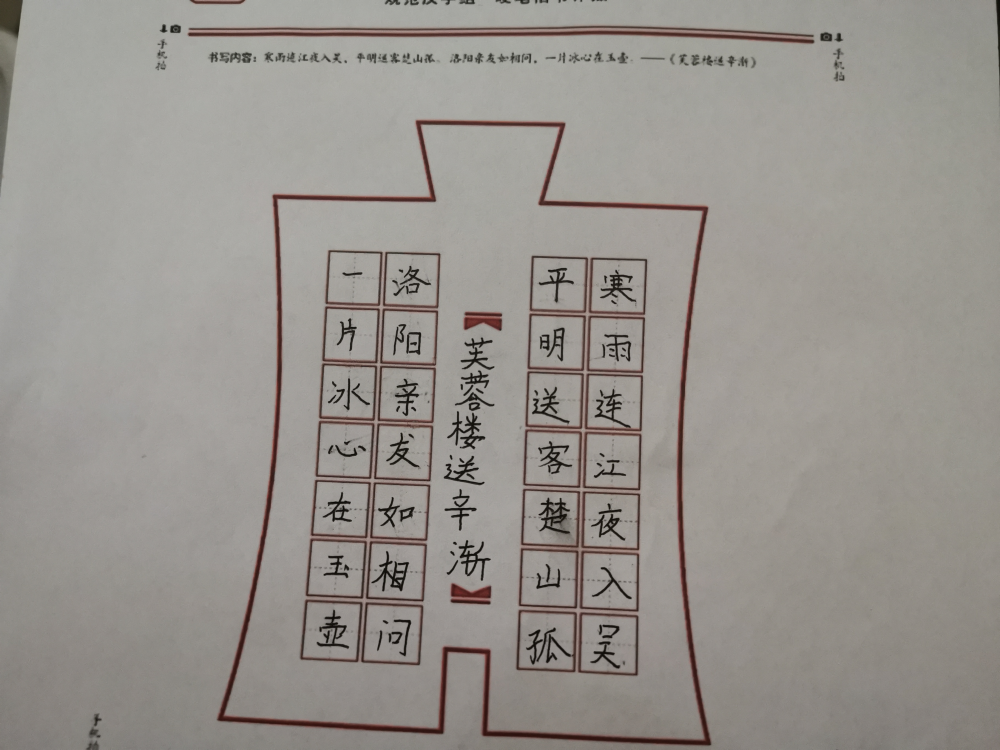 手机拍
手机拍
书写内容：寒雨连江夜入吴，平明送客楚山孤。洛阳亲友如相问，一片冰心在玉壶。——《芙蓉楼送辛渐》
寒雨连江夜入吴
平明送客楚山孤
芙蓉楼送辛渐
洛阳亲友如相问
一片冰心在玉壶
手机拍